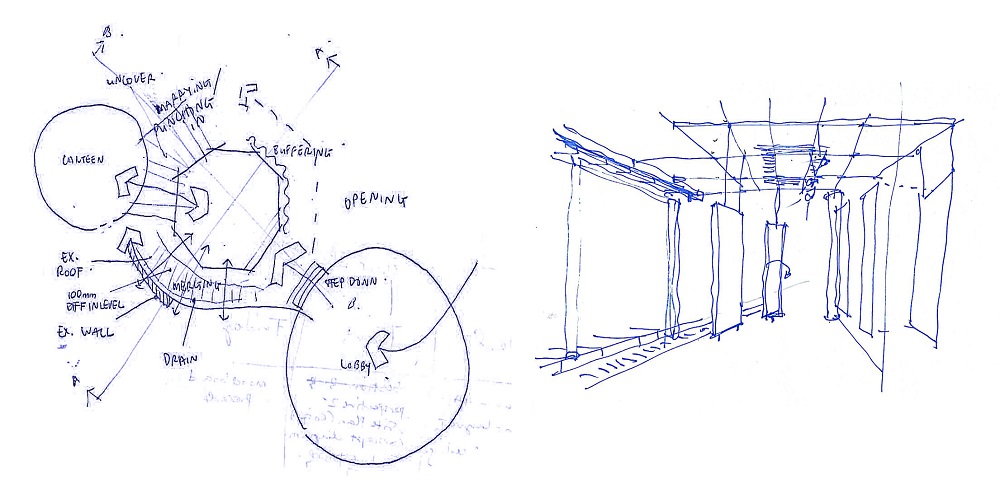 B.
A.
UNCOVER.
MARRYING/
PUNCHING
IN
CANTEEN
BUFFERING.
OPENING
EX.
ROOF.
100mm
DIFF IN LEVEL
MERGING
STEP DOWN.
B.
EX. WALL
DRAIN
LOBBY
A